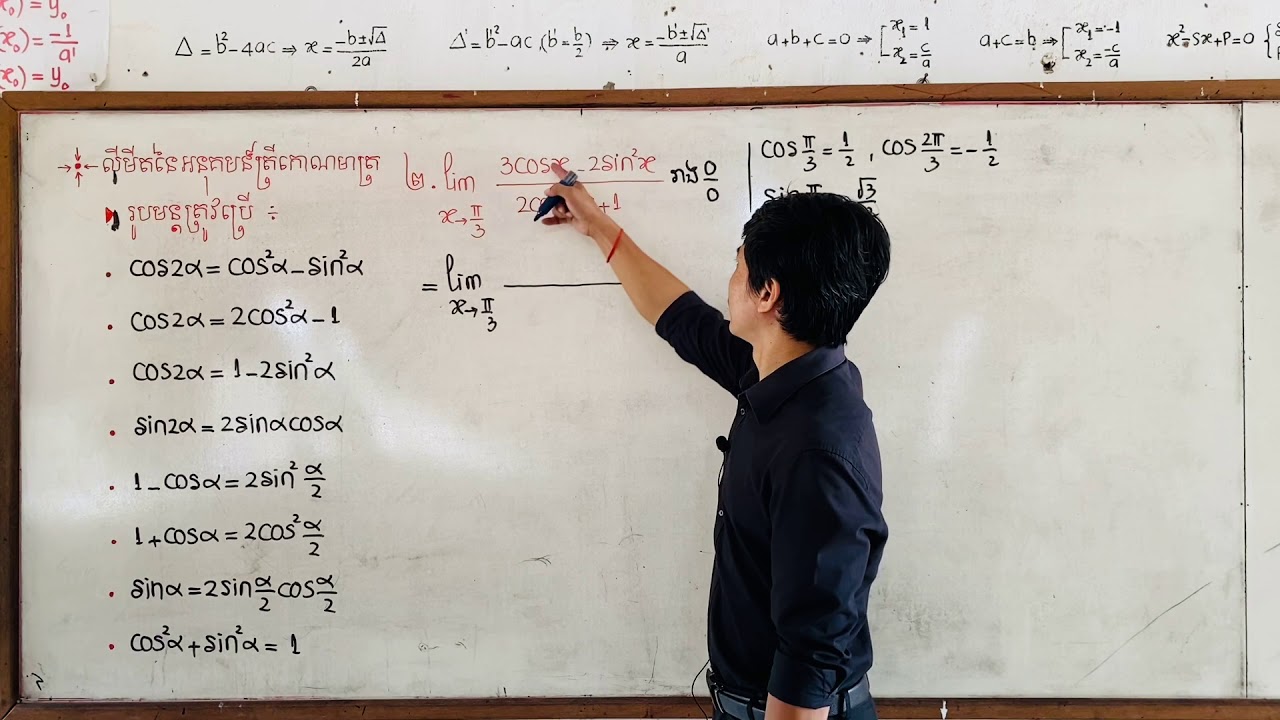 x₀) = y₀
(x₀) = -1/a'
(x₀) = y₀
Δ = b² - 4ac ⇒ x = (-b ± √Δ)/2a
Δ' = b'² - ac, (b' = b/2) ⇒ x = (-b' ± √Δ')/a
a + b + c = 0 ⇒ [x₁ = 1
x₂ = c/a
a + c = b ⇒ [x₁ = -1
x₂ = -c/a
x² - Sx + P = 0 {
លីមីតនៃអនុគមន៍ត្រីកោណមាត្រ
រូបមន្តត្រូវប្រើ ៖
cos2α = cos²α - sin²α
cos2α = 2cos²α - 1
cos2α = 1 - 2sin²α
sin2α = 2sinαcosα
1 - cosα = 2sin² α/2
1 + cosα = 2cos² α/2
sinα = 2sin α/2 cos α/2
cos²α + sin²α = 1
២. lim x→π/3 (3cosx - 2sin²x)/(2co +1) រាង 0/0
= lim x→π/3
cos π/3 = 1/2 , cos 2π/3 = -1/2
sin π √3